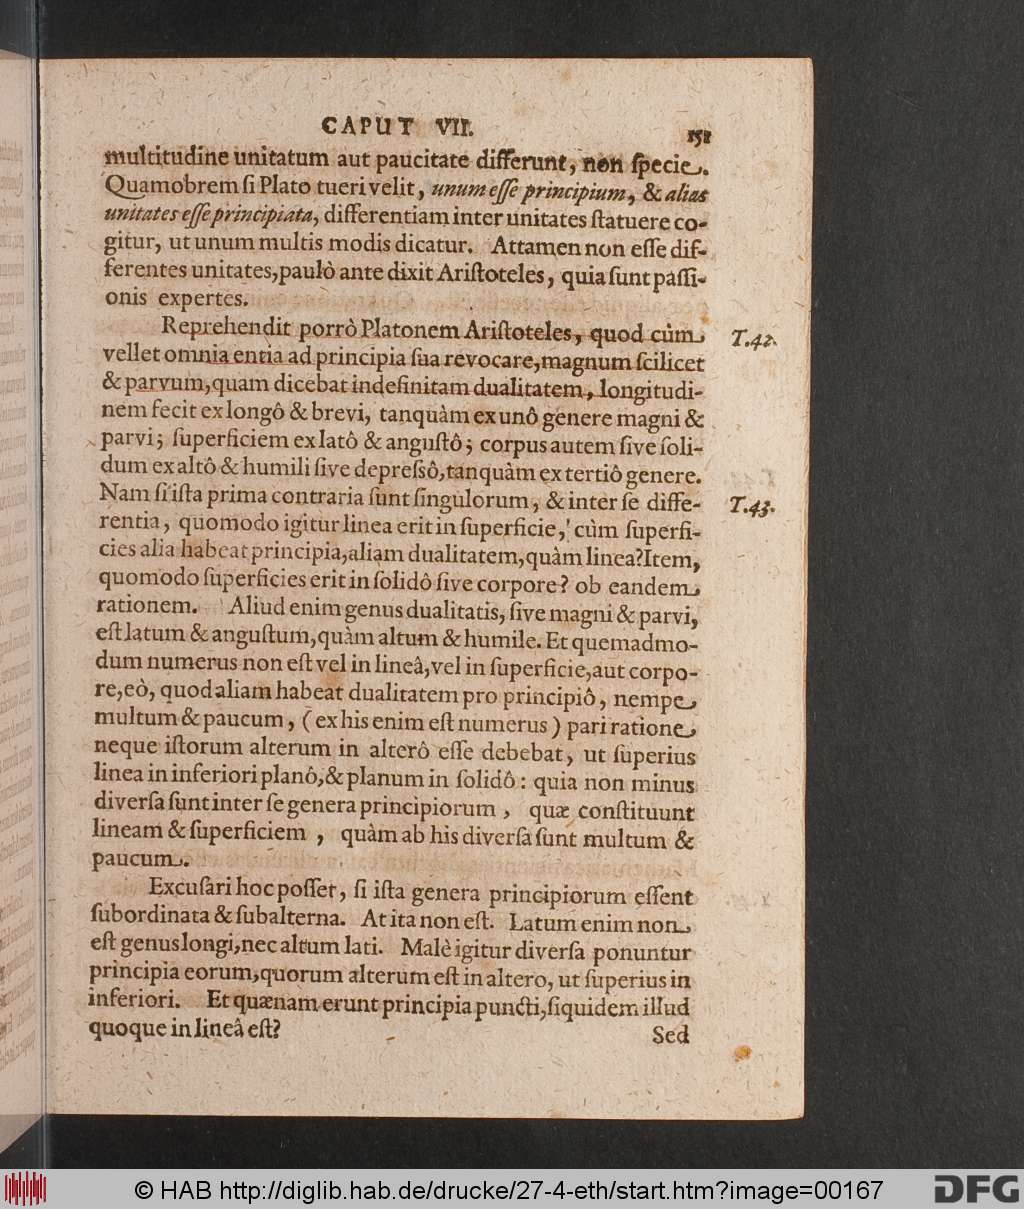 CAPUT VII. 151
multitudine unitatum aut paucitate differunt, non ſpecie.
Quamobrem ſi Plato tueri velit, unum eſſe principium, & alias
unitates eſſe principiata, differentiam inter unitates ſtatuere co-
gitur, ut unum multis modis dicatur. Attamen non eſſe dif-
ferentes unitates, paulò ante dixit Ariſtoteles, quia ſunt paſſi-
onis expertes.
Reprehendit porrò Platonem Ariſtoteles, quod cùm T.42.
vellet omnia entia ad principia ſua revocare, magnum ſcilicet
& parvum, quam dicebat indefinitam dualitatem, longitudi-
nem fecit ex longô & brevi, tanquàm ex unô genere magni &
parvi; ſuperficiem ex latô & anguſtô; corpus autem ſive ſoli-
dum ex altô & humili ſive depreſsô, tanquàm ex tertiô genere.
Nam ſi iſta prima contraria ſunt ſingulorum, & inter ſe diffe- T.43.
rentia, quomodo igitur linea erit in ſuperficie, cùm ſuperfi-
cies alia habeat principia, aliam dualitatem, quàm linea? Item,
quomodo ſuperficies erit in ſolidô ſive corpore? ob eandem
rationem. Aliud enim genus dualitatis, ſive magni & parvi,
eſt latum & anguſtum, quàm altum & humile. Et quemadmo-
dum numerus non eſt vel in lineâ, vel in ſuperficie, aut corpo-
re, eò, quod aliam habeat dualitatem pro principiô, nempe
multum & paucum, (ex his enim eſt numerus) pari ratione
neque iſtorum alterum in alterô eſſe debebat, ut ſuperius
linea in inferiori planô, & planum in ſolidô: quia non minus
diverſa ſunt inter ſe genera principiorum, quæ conſtituunt
lineam & ſuperficiem, quàm ab his diverſa ſunt multum &
paucum.
Excuſari hoc poſſet, ſi iſta genera principiorum eſſent
ſubordinata & ſubalterna. At ita non eſt. Latum enim non
eſt genus longi, nec altum lati. Malè igitur diverſa ponuntur
principia eorum, quorum alterum eſt in altero, ut ſuperius in
inferiori. Et quænam erunt principia puncti, ſiquidem illud
quoque in lineâ eſt?
Sed
© HAB http://diglib.hab.de/drucke/27-4-eth/start.htm?image=00167
DFG